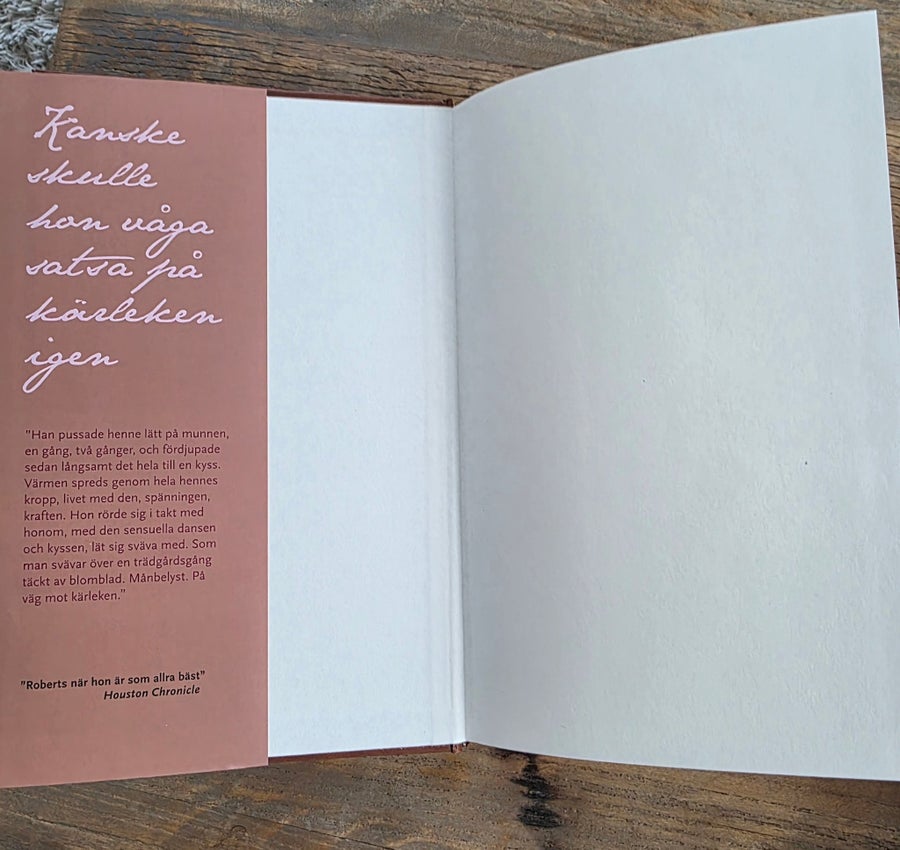 Kanske
skulle
hon våga
satsa på
kärleken
igen
"Han pussade henne lätt på munnen,
en gång, två gånger, och fördjupade
sedan långsamt det hela till en kyss.
Värmen spreds genom hela hennes
kropp, livet med den, spänningen,
kraften. Hon rörde sig i takt med
honom, med den sensuella dansen
och kyssen, lät sig sväva med. Som
man svävar över en trädgårdsgång
täckt av blomblad. Månbelyst. På
väg mot kärleken."
"Roberts när hon är som allra bäst"
Houston Chronicle